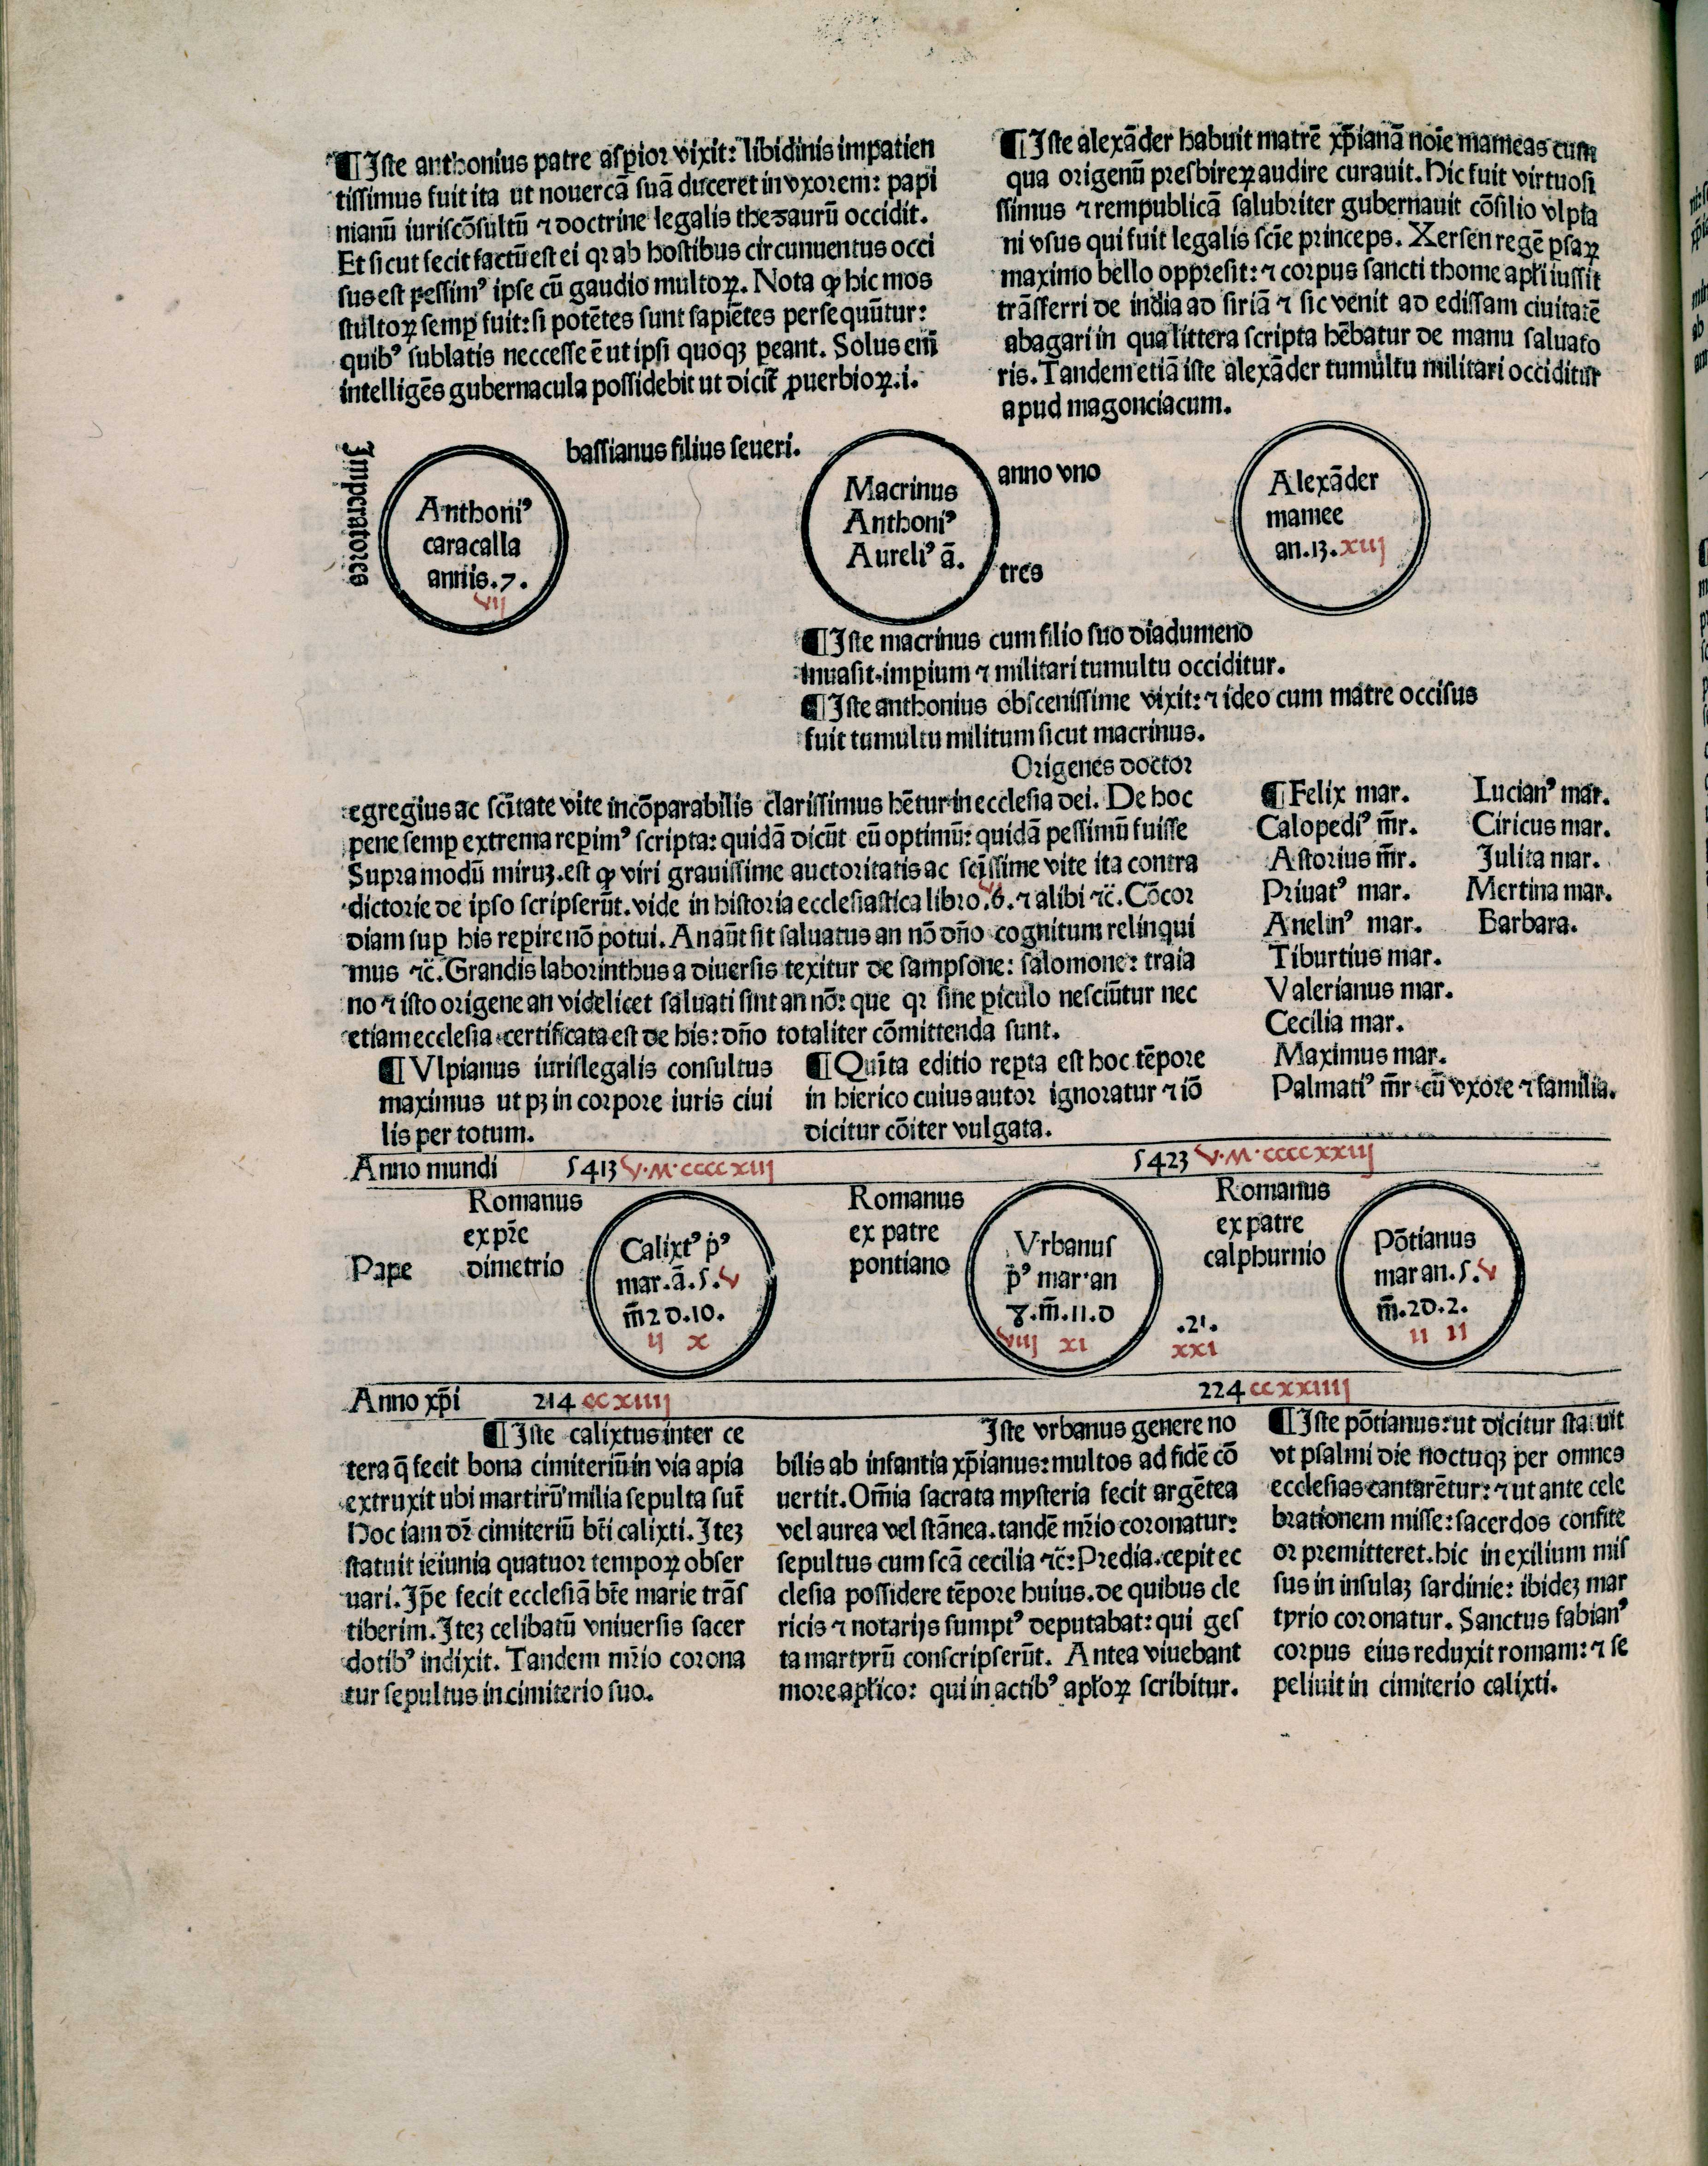 ¶Iste anthonius patre asꝑior vixit: libidinis impatien
tissimus fuit ita ut nouercā suā duceret in vxorem: papi
nianū iuriscōsultū ⁊ doctrine legalis thesaurū occidit.
Et sicut fecit factū est ei qꝛ ab hostibus circumuentus occi
sus est ꝑessimꝰ ipse cū gaudio multoꝝ. Nota ꝙ hic mos
stultoꝝ semꝑ fuit: si potētes sunt sapiētes persequūtur:
quibꝰ sublatis neccesse ē ut ipsi quoqꝫ ꝑeant. Solus eni̅
intelligēs gubernacula possidebit ut dicit̄ ꝓuerbioꝝ.i.
¶Iste alexāder habuit matrē xp̄ianā noīe mameas cum
qua origenū presbireꝝ audire curauit. Hic fuit virtuosi
ssimus ⁊ rempublicā salubriter gubernauit cōsilio vlpta
ni vsus qui fuit legalis scīe princeps. Xersen regē ꝑsaꝝ
maximo bello oppresit: ⁊ corpus sancti thome apłi iussit
trāsferri de india ad siriā ⁊ sic venit ad edissam ciuitatē
abagari in qua littera scripta hēbatur de manu saluato
ris. Tandem etiā iste alexāder tumultu militari occiditur
apud magonciacum.
Imperatores
Anthoniꝰ
caracalla
annis.7.
vij
bassianus filius seueri.
Macrinus
Anthoniꝰ
Aureliꝰ ā.
anno vno
tres
Alexāder
mamee
an.13.xiij
¶Iste macrinus cum filio suo diadumeno
inuasit.imꝑium ⁊ militari tumultu occiditur.
¶Iste anthonius obscenissime vixit: ⁊ ideo cum matre occisus
fuit tumultu militum sicut macrinus.
Origenes doctor
egregius ac scītate vite incōparabilis clarissimus hētur in ecclesia dei. De hoc
pene semꝑ extrema reꝑimꝰ scripta: quidā dicūt eū optimū: quidā pessimū fuisse
Supra modū miruꝫ.est ꝙ viri grauissime auctoritatis ac scīssime vite ita contra
dictorie de ipso scripserūt. vide in historia ecclesiastica libro.6. ⁊ alibi ⁊c̄. Cōcor
vi
diam suꝑ his reꝑire nō potui. An aūt sit saluatus an nō dn̄o cognitum relinqui
mus ⁊c̄. Grandis laborinthus a diuersis texitur de sampsone: salomone: traia
no ⁊ isto origene an videlicet saluati sint an nō: que qꝛ sine ꝑiculo nesciūtur nec
etiam ecclesia certificata est de his: dn̄o totaliter cōmittenda sunt.
¶Felix mar.
Calopediꝰ m̄r.
Astorius m̄r.
Priuatꝰ mar.
Anelinꝰ mar.
Tiburtius mar.
Valerianus mar.
Cecilia mar.
Maximus mar.
Palmatiꝰ m̄r cū vxore ⁊ familia.
Lucianꝰ mar.
Ciricus mar.
Julita mar.
Mertina mar.
Barbara.
¶Vlpianus iurislegalis consultus
maximus ut pꝫ in corpore iuris ciui
lis per totum.
¶Quīta editio reꝑta est hoc tēpore
in hierico cuius autor ignoratur ⁊ iō
dicitur cōiter vulgata.
Anno mundi 5413 v.M.ccccxiij 5423 v.M.ccccxxiij
Pape
Romanus
ex pr̄e
dimetrio
Calixtꝰ pꝰ
mar.ā.5.v
m̄ 2 d.10.
ij x
Romanus
ex patre
pontiano
Vrbanus
pꝰ mar an
8.m̄.11.d
viij xi
.21.
xxi
Romanus
ex patre
calphurnio
Pōtianus
mar an.5.v
m̄.2 d.2.
ii ii
Anno xp̄i 214 ccxiiij 224 ccxxiiij
¶Iste calixtus inter ce
tera q̄ fecit bona cimiteriū in via apia
extruxit ubi martirū milia sepulta sūt
Hoc iam dr̄ cimiteriū bt̄i calixti. Iteꝫ
statuit ieiunia quatuor tempoꝝ obser
uari. Ip̄e fecit ecclesiā bt̄e marie trās
tiberim. Iteꝫ celibatū vniuersis sacer
dotibꝰ indixit. Tandem mr̄io corona
tur sepultus in cimiterio suo.
Iste vrbanus genere no
bilis ab infantia xp̄ianus: multos ad fidē cō
uertit. Om̄ia sacrata mysteria fecit argētea
vel aurea vel stānea. tandē mr̄io coronatur:
sepultus cum scā cecilia ⁊c̄: Predia.cepit ec
clesia possidere tēpore huius. de quibus cle
ricis ⁊ notarijs sumptꝰ deputabat: qui ges
ta martyrū conscripserūt. Antea viuebant
more apłico: qui in actibꝰ apłoꝝ scribitur.
¶Iste pōtianus: ut dicitur statuit
vt psalmi die noctuqꝫ per omnes
ecclesias cantarētur: ⁊ ut ante cele
brationem misse: sacerdos confite
or premitteret. hic in exilium mis
sus in insulaꝫ sardinie: ibideꝫ mar
tyrio coronatur. Sanctus fabianꝰ
corpus eius reduxit romam: ⁊ se
peliuit in cimiterio calixti.